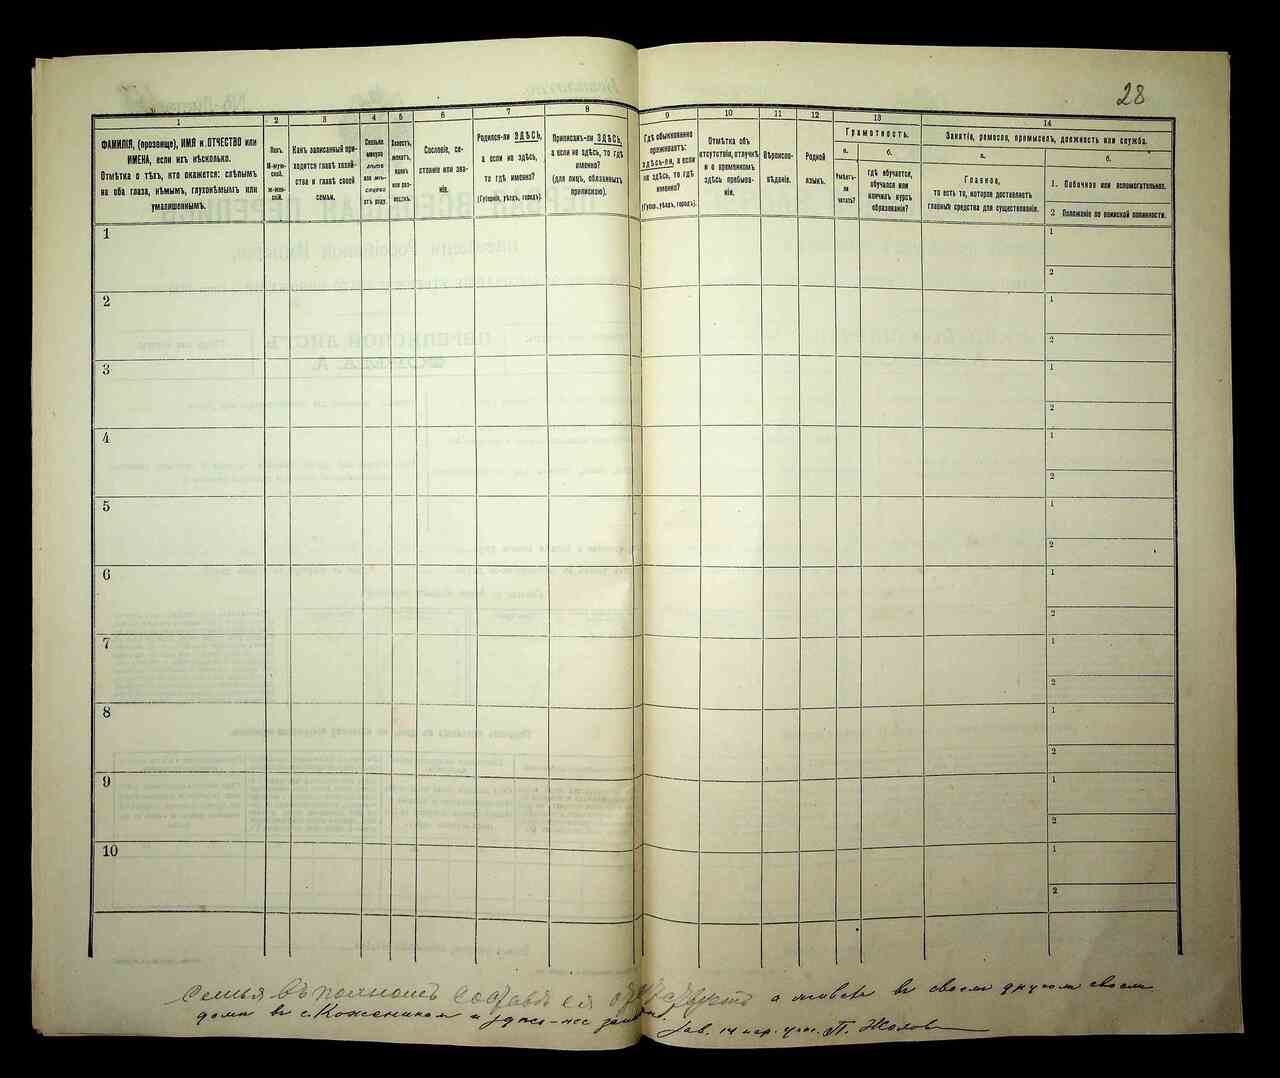 28
1
2
3
4
5
6
7
8
9
10
11
12
13
14
ФАМИЛІЯ, (прозвище), ИМЯ и ОТЧЕСТВО или
ИМЕНА, если ихъ нѣсколько.
Отмѣтка о тѣхъ, кто окажется: слѣпымъ
на оба глаза, нѣмымъ, глухонѣмымъ или
умалишеннымъ.
Полъ.
М-муж-
ской.
Ж-жен-
скій.
Какъ записанный при-
ходится главѣ хозяй-
ства и главѣ своей
семьи.
Сколько
минуло
лѣтъ
или мѣ-
сяцевъ
отъ роду.
Холостъ,
женатъ,
вдовъ
или раз-
веденъ.
Сословіе, со-
стояніе или зва-
ніе.
Родился-ли ЗДѢСЬ,
а если не здѣсь,
то гдѣ именно?
(Губернія, уѣздъ, городъ).
Приписанъ-ли ЗДѢСЬ,
а если не здѣсь, то гдѣ
именно?
(для лицъ, обязанныхъ
припискою).
Гдѣ обыкновенно
проживаетъ:
здѣсь-ли, а если
не здѣсь, то гдѣ
именно?
(Губер., уѣздъ, городъ).
Отмѣтка объ
отсутствіи, отлучкѣ
и о временномъ
здѣсь пребыва-
ніи.
Вѣроиспо-
вѣданіе.
Родной
языкъ.
Грамотность.
а.
Умѣетъ-
ли
читать?
б.
гдѣ обучается,
обучался или
кончилъ курсъ
образованія?
Занятіе, ремесло, промыселъ, должность или служба.
а.
Главное,
то есть то, которое доставляетъ
главныя средства для существованія.
б.
1. Побочное или вспомогательное.
2 Положеніе по воинской повинности.
1
1
2
2
1
2
3
1
2
4
1
2
5
1
2
6
1
2
7
1
2
8
1
2
9
1
2
10
1
2
семья въ полномъ составѣ ея отсутствуетъ а живетъ въ своемъ другомъ своемъ
домѣ въ с.